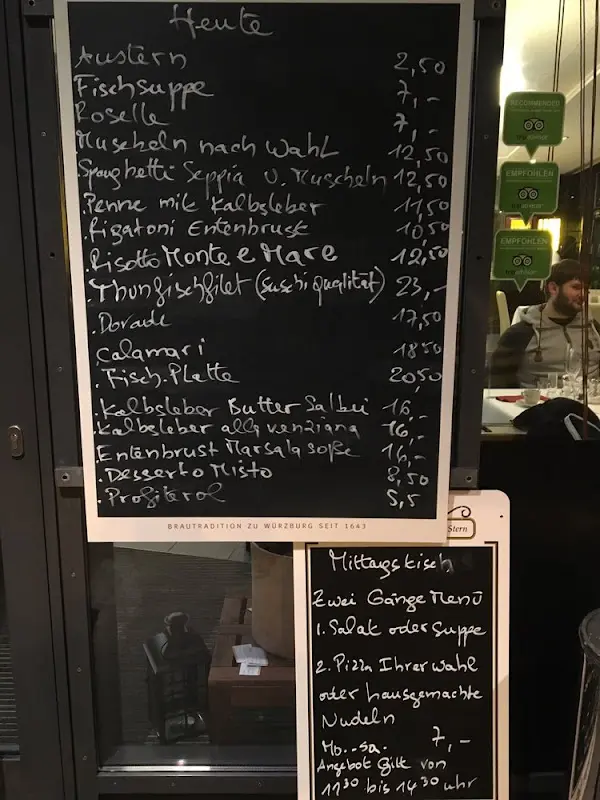 Heute
Austern 2,50
Fischsuppe 7,-
Roselle 7,-
Muscheln nach Wahl 12,50
Spaghetti Seppia u. Muscheln 12,50
Penne mit Kalbsleber 11,50
Rigatoni Entenbrust 10,50
Risotto Monte e Mare 12,50
Thunfischfilet (sushi qualität) 23,-
Dorade 17,50
Calamari 18 50
Fisch.Platte 20 50
Kalbsleber Butter Salbei 16,-
Kalbsleber alla venziana 16,-
Entenbrust Marsala soße 16,-
Desserto Misto 8,50
Profiterol 5,5
BRAUTRADITION ZU WÜRZBURG SEIT 1643
RECOMMENDED
EMPFOHLEN
EMPFOHLEN
Stern
Mittagstisch
Zwei Gänge Menü
1. Salat oder Suppe
2. Pizza Ihrer wahl
oder hausgemachte
Nudeln
Mo.-Sa. 7,-
Angebot Gilt von
11 30 bis 14 30 uhr